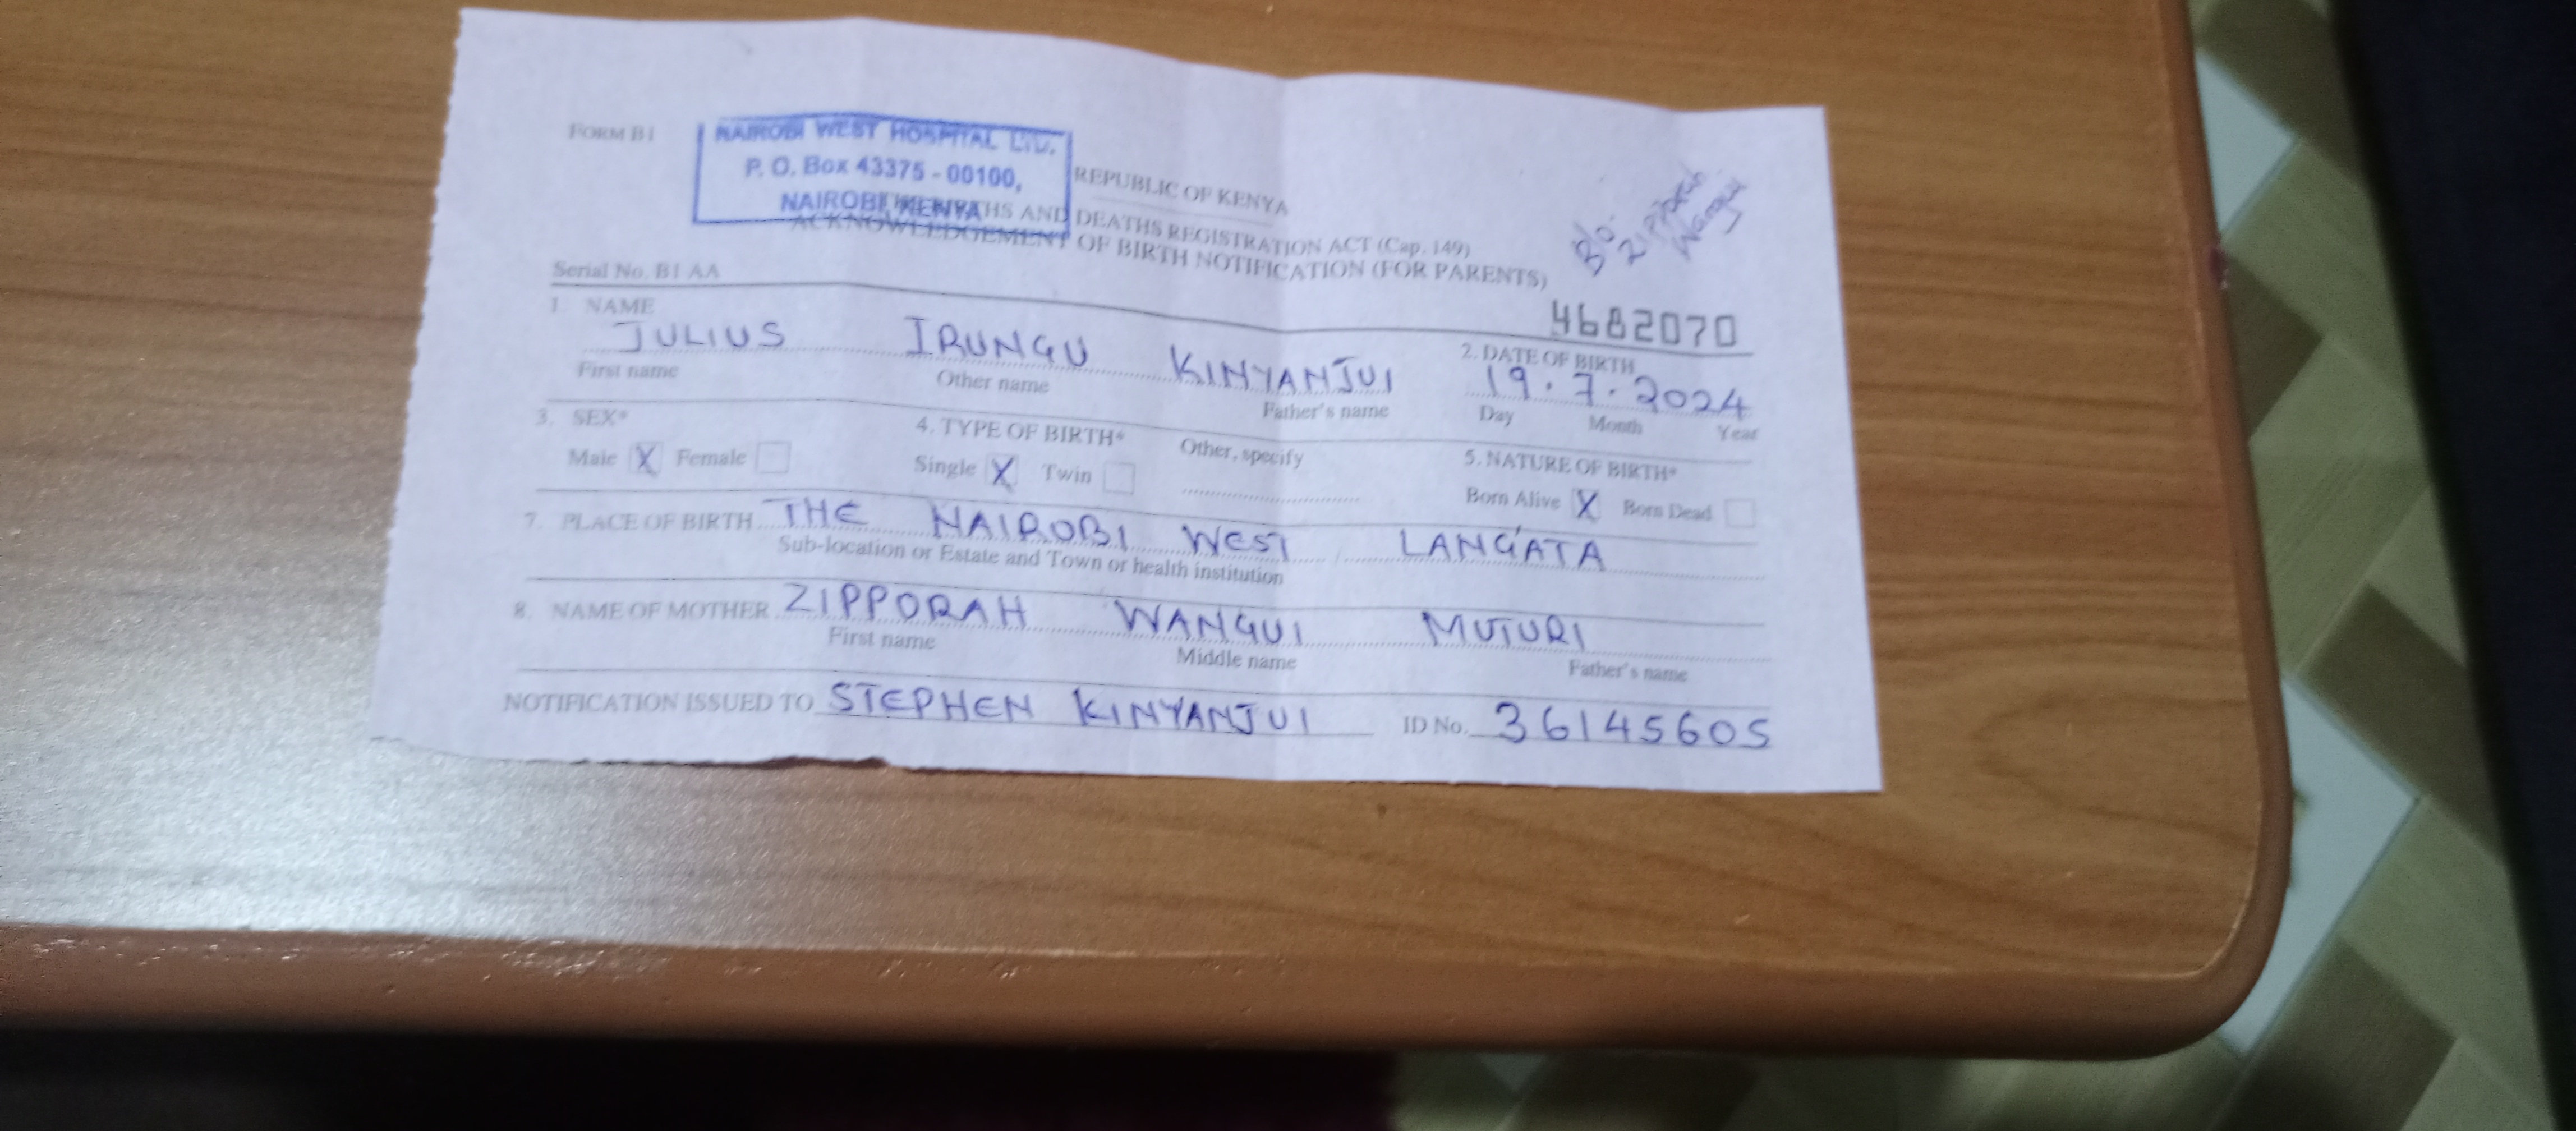 FORM B1
NAIROBI WEST HOSPITAL LTD.
P. O. Box 43375 - 00100,
NAIROBI, KENYA
REPUBLIC OF KENYA
THS AND DEATHS REGISTRATION ACT (Cap. 149)
ACKNOWLEDGEMENT OF BIRTH NOTIFICATION (FOR PARENTS)
B/o:
Zipporah
Wangui
Serial No. B1 AA
4682070
1. NAME
JULIUS IRUNGU KINYANJUI
First name Other name Father's name
2. DATE OF BIRTH
19.7.2024
Day Month Year
3. SEX*
Male X Female
4. TYPE OF BIRTH*
Single X Twin
Other, specify
5. NATURE OF BIRTH*
Born Alive X Born Dead
7. PLACE OF BIRTH THE NAIROBI WEST LANG'ATA
Sub-location or Estate and Town or health institution
8. NAME OF MOTHER ZIPPORAH WANGUI MUTURI
First name Middle name Father's name
NOTIFICATION ISSUED TO STEPHEN KINYANJUI ID No. 36145605